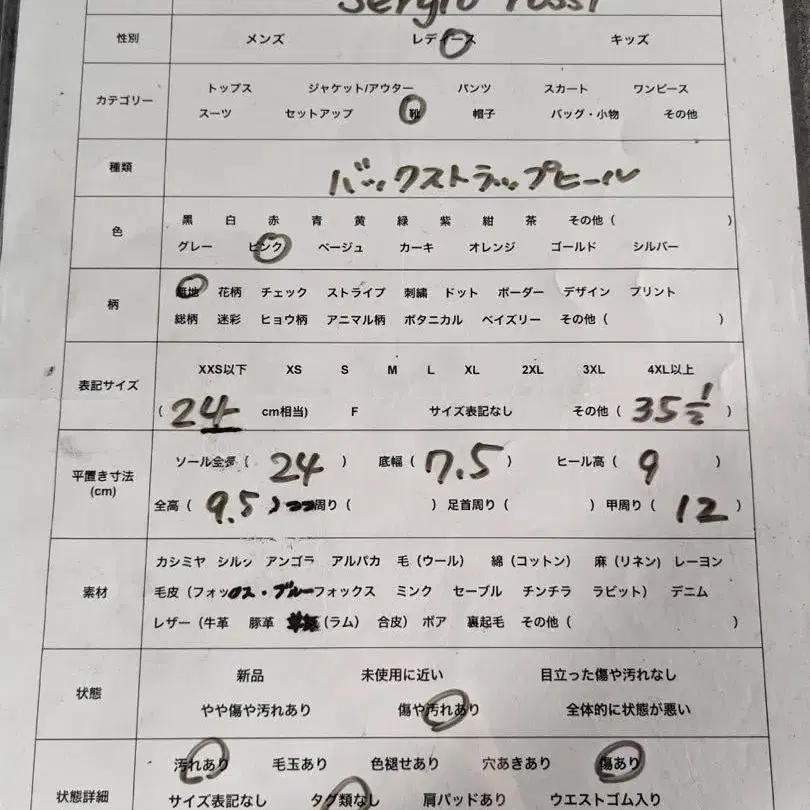 Sergio rossi
性別 メンズ レディース キッズ
トップス ジャケット/アウター パンツ スカート ワンピース
カテゴリー
スーツ セットアップ 靴 帽子 バッグ・小物 その他
種類 バックストラップヒール
黒 白 赤 青 黄 緑 紫 紺 茶 その他 ( )
色
グレー ピンク ベージュ カーキ オレンジ ゴールド シルバー
無地 花柄 チェック ストライプ 刺繍 ドット ボーダー デザイン プリント
柄
総柄 迷彩 ヒョウ柄 アニマル柄 ボタニカル ペイズリー その他 ( )
XXS以下 XS S M L XL 2XL 3XL 4XL以上
表記サイズ
( 24 cm相当) F サイズ表記なし その他 ( 35 1/2 )
ソール全長 ( 24 ) 底幅 ( 7.5 ) ヒール高 ( 9 )
平置き寸法
(cm)
全高 ( 9.5 ) 周り ( ) 足首周り ( ) 甲周り ( 12 )
カシミヤ シルク アンゴラ アルパカ 毛 (ウール) 綿 (コットン) 麻 (リネン) レーヨン
素材
毛皮 (フォックス・ブルーフォックス ミンク セーブル チンチラ ラビット) デニム
レザー (牛革 豚革 (ラム) 合皮) ボア 裏起毛 その他 ( )
新品 未使用に近い 目立った傷や汚れなし
状態
やや傷や汚れあり 傷や汚れあり 全体的に状態が悪い
汚れあり 毛玉あり 色褪せあり 穴あきあり 傷あり
状態詳細
サイズ表記なし タグ類なし 肩パッドあり ウエストゴム入り